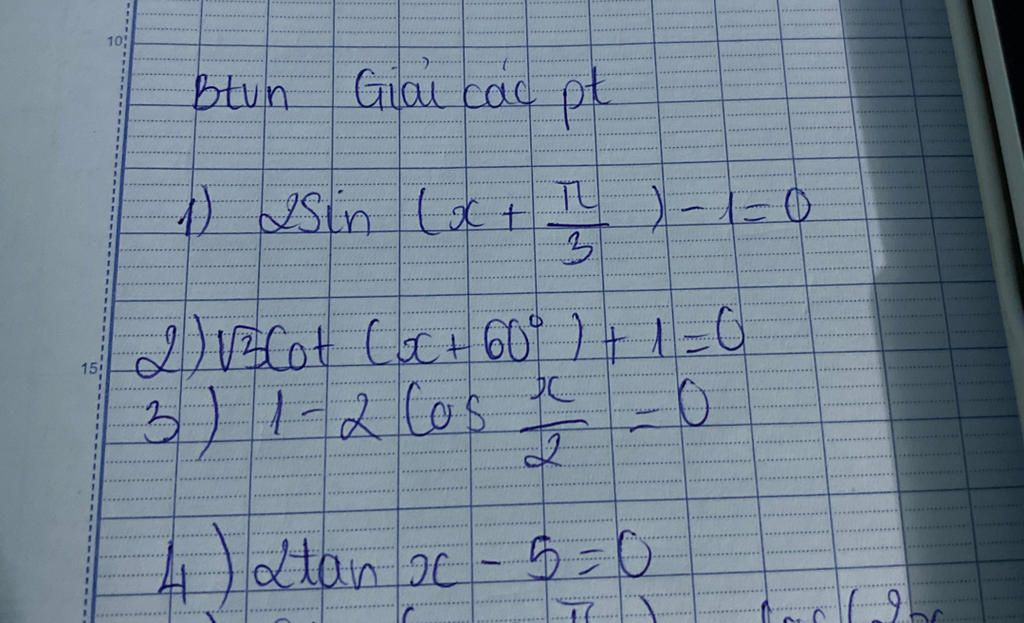 10
Btvn Giải các pt
1) 2Sin (x + π/3) - 1 = 0
2) √3Cot (x + 60°) + 1 = 0
15
3) 1 - 2 Cos x/2 = 0
4) 2tan x - 5 = 0